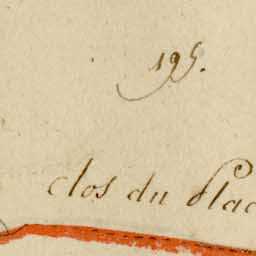 195.
clos du Plac